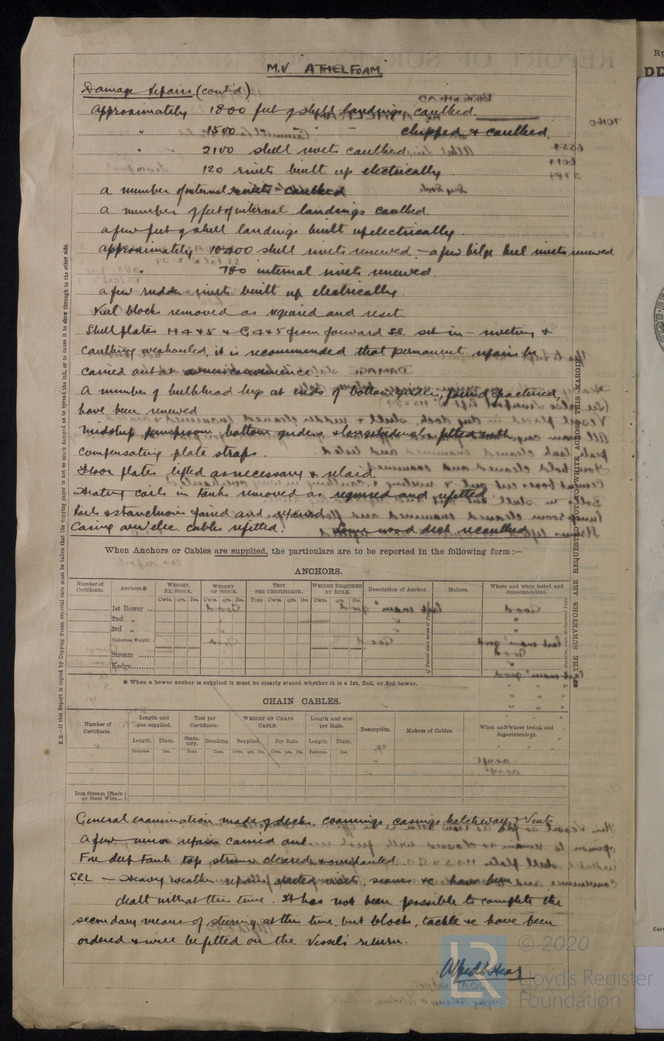 M.V. "ATHELFOAM."
Damage repairs (cont'd)
Approximately 1800 feet of shell landings caulked
" 1500 " " " " chipped & caulked
" 2100 shell rivets caulked
120 rivets built up electrically
a number of internal rivets caulked
a number of feet of internal landings caulked.
a few feet of shell landings built up electrically.
approximately 10400 shell rivets renewed – a few bilge keel rivets renewed
" 780 internal rivets renewed.
a few rudder rivets built up electrically
Keel blocks removed as required and reset.
Shell plates H 4 & 5 & G 4 & 5 from forward set in – riveting &
caulking overhauled, it is recommended that permanent repairs be
carried out at owners convenience
A number of bulkhead lugs at ends of bottom girders, found fractured,
have been renewed
Midship bottom girders & longitudinals fitted with
compensating plate straps.
Floor plates lifted as necessary & relaid.
Heating coils in tanks removed as required and refitted
Rails & stanchions faired and repaired
Casing over elec cables refitted. Some wood deck recaulked
When Anchors or Cables are supplied, the particulars are to be reported in the following form :—
ANCHORS.
Number of Certificate. Anchors.* WEIGHT. EX. STOCK. WEIGHT OF STOCK. TEST PER CERTIFICATE. WEIGHT REQUIRED BY RULE. Description of Anchor. Makers. Where and when tested and Superintendent.
Cwts. qrs. lbs. Cwts. qrs. lbs. Tons cwts. qrs. lbs. Cwts. qrs. lbs.
1st Bower ...
2nd "
3rd "
Collective Weight.
Stream .......
Kedge.........
* When a bower anchor is supplied it must be clearly stated whether it is a 1st, 2nd, or 3rd bower.
CHAIN CABLES.
Number of Certificate. Length and size supplied. Test per Certificate. WEIGHT OF CHAIN CABLE. Length and size per Rule. Description. Makers of Cables. When and where tested, and Superintendent.
Length. Diam. Statutory. Breaking. Supplied. Per Rule. Length. Diam.
Fathoms. Ins. Tons. Tons. Cwts. qrs. lbs. Cwts. qrs. lbs. Fathoms. Ins.
Iron Stream Chain or Steel Wire...
General examination made of decks, coamings, casings hatchways & Vents.
A few minor repairs carried out.
Fore deep tank top cleared &
SRL – Heavy weather repairs, rivets, seams &c have been
dealt with at this time. It has not been possible to complete the
secondary means of steering at this time, but blocks, tackle &c have been
ordered & will be fitted on the vessel's return.
N.B.—If this Report is copied by Copying Press, especial care must be taken that the copying paper is not so much damped as to spread the ink, or to cause it to show through to the other side.
THE SURVEYORS ARE REQUESTED NOT TO WRITE ACROSS THIS MARGIN.
© 2020
Lloyd's Register
Foundation